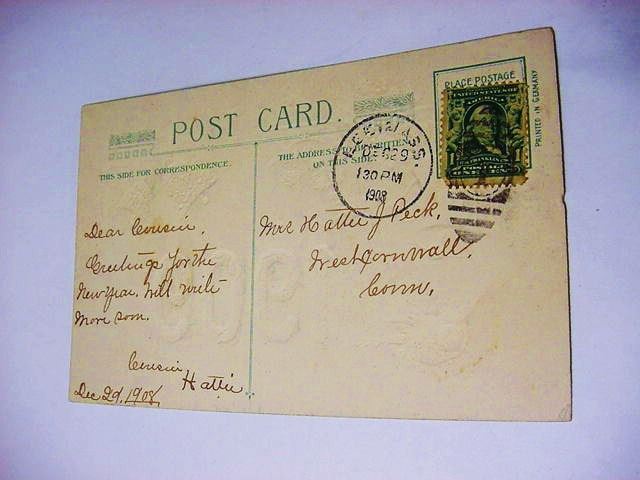 POST CARD.
PLACE POSTAGE
PRINTED IN GERMANY
UNITED STATES OF
AMERICA
FRANKLIN
1
POSTAGE
ONE CENT
THIS SIDE FOR CORRESPONDENCE.
THE ADDRESS TO BE WRITTEN
ON THIS SIDE
MASS.
DEC 29
1 30 PM
1908
Dear Cousin,
Greetings for the
New Year. Will write
more soon.
Cousin
Hattie
Dec 29, 1908,
Mrs Hattie J Peck,
West Cornwall,
Conn,